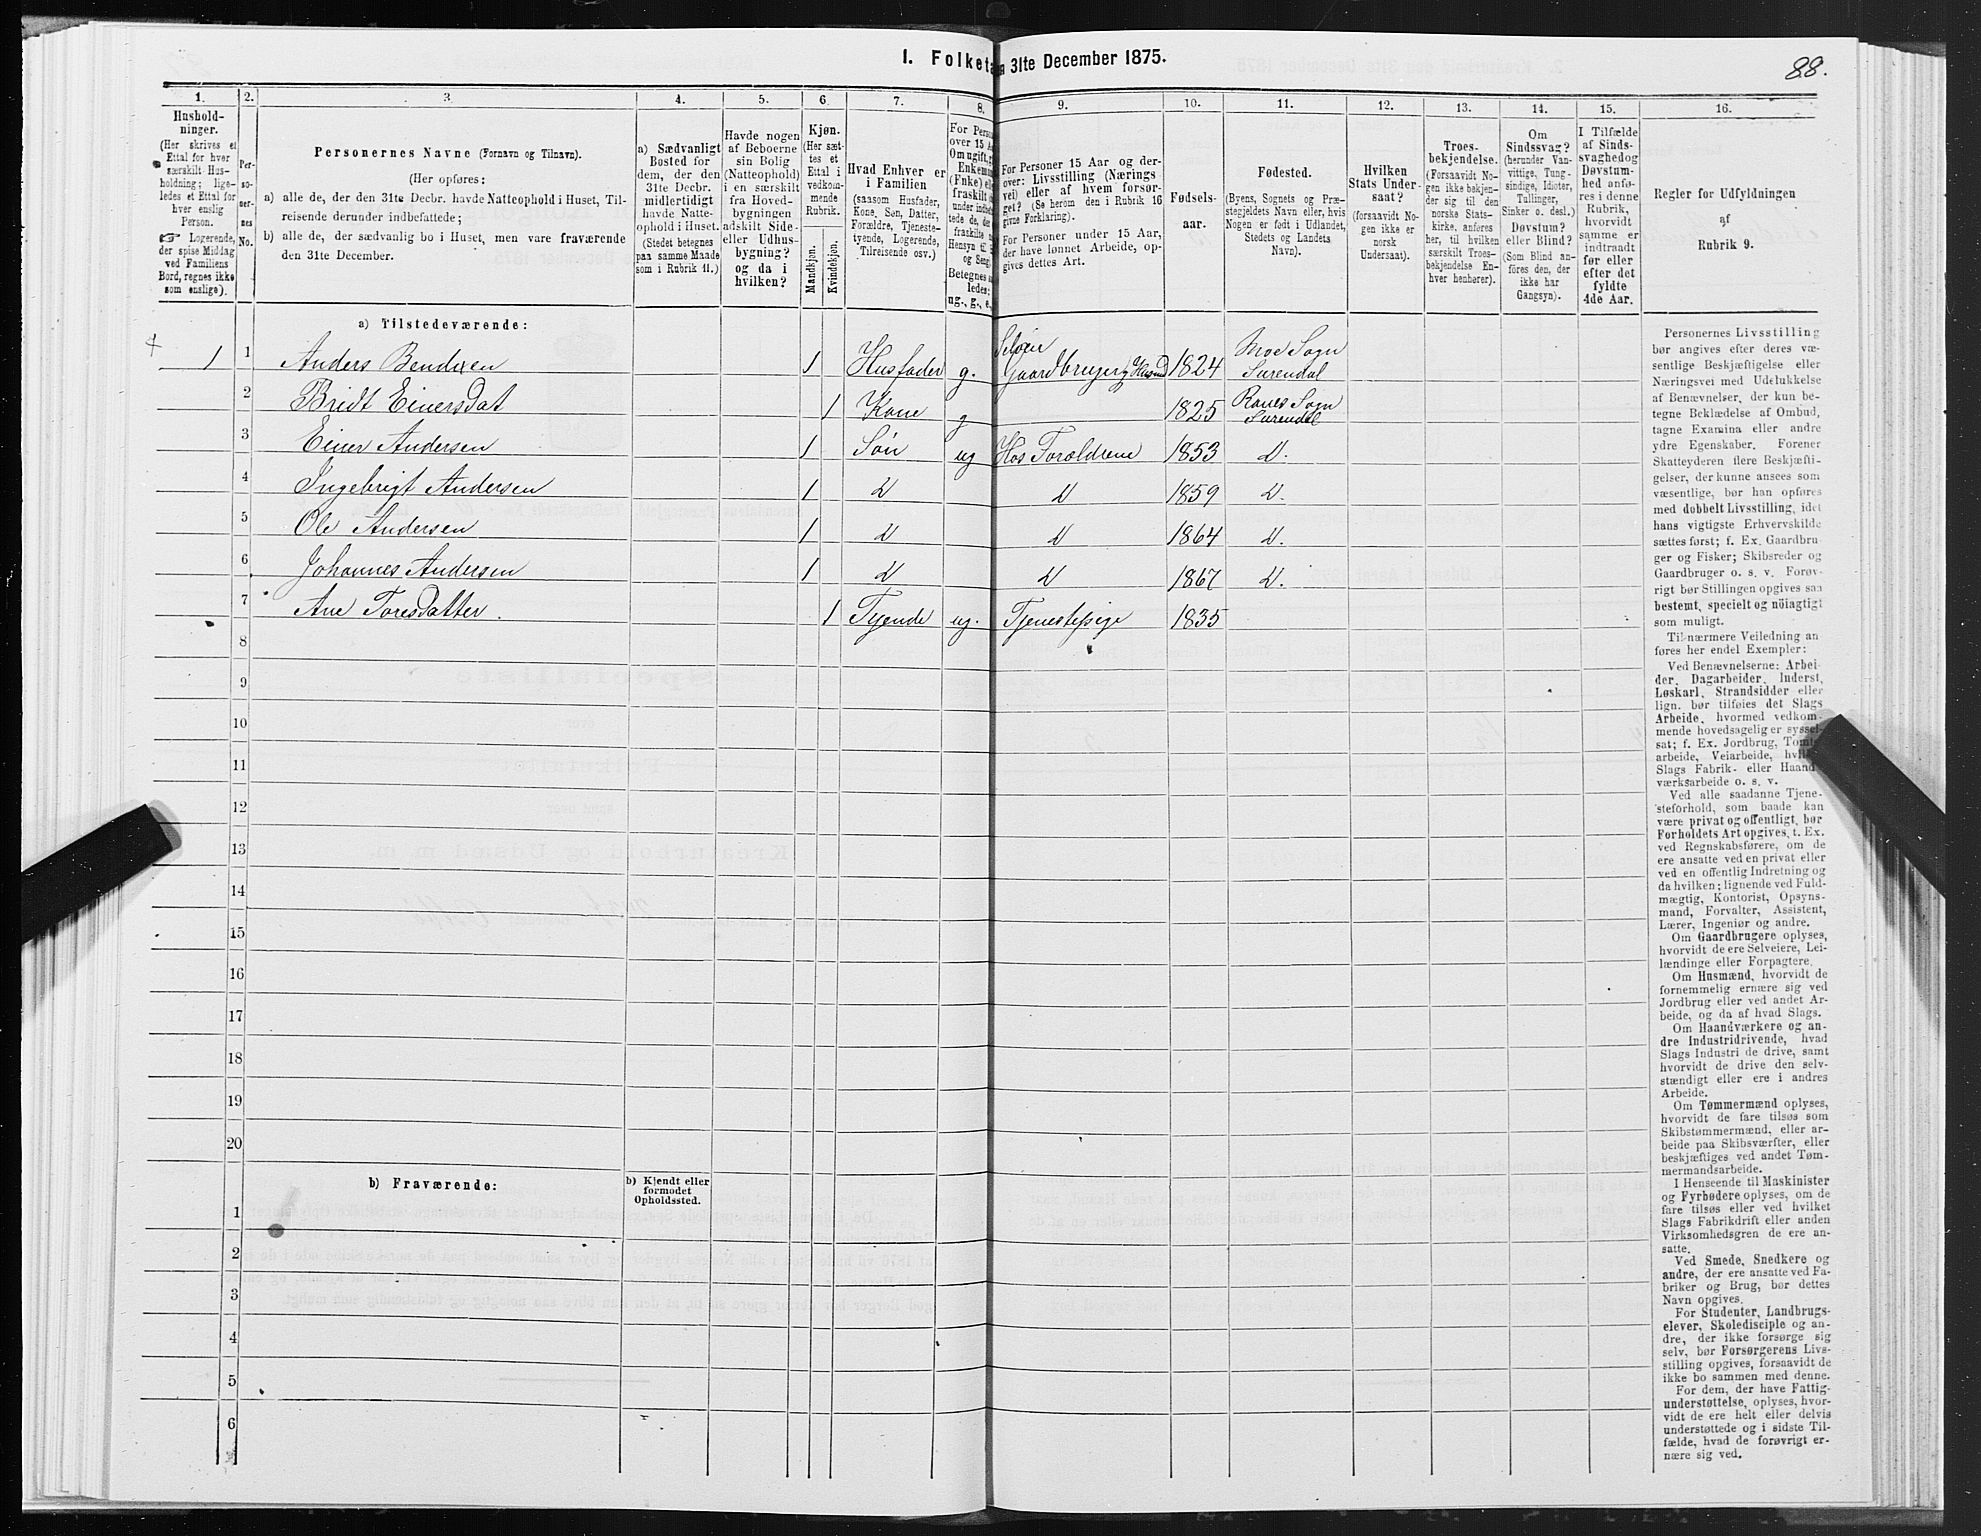 I. Folketa
n 31te December 1875.
88.
1.
2.
3.
4.
5.
6.
7.
8.
9.
10.
11.
12.
13.
14.
15.
16.
Hushold-
ninger.
(Her skrives et
Ettal for hver
særskilt Hus-
holdning; lige-
ledes et Ettal for
hver enslig
Person.
Logerende,
der spise Middag
ved Familiens
Bord, regnes ikke
som enslige).
Per-
so-
ner-
nes
No.
Personernes Navne (Fornavn og Tilnavn).
(Her opføres:
a) alle de, der den 31te Decbr. havde Natteophold i Huset, Til-
reisende derunder indbefattede;
b) alle de, der sædvanlig bo i Huset, men vare fraværende
den 31te December.
a) Sædvanligt
Bosted for
dem, der den
31te Decbr.
midlertidigt
havde Natte-
ophold i Huset.
(Stedet betegnes
paa samme Maade
som i Rubrik 11.)
Havde nogen
af Beboerne
sin Bolig
(Natteophold)
i en særskilt
fra Hoved-
bygningen
adskilt Side-
eller Udhus-
bygning?
og da i
hvilken?
Kjøn.
(Her sæt-
tes et
Ettal i
vedkom-
mende
Rubrik.
Mandkjøn.
Kvindekjøn.
Hvad Enhver er
i Familien
(saasom Husfader,
Kone, Søn, Datter,
Forældre, Tjeneste-
tyende, Logerende,
Tilreisende osv.)
For Perso
over 15 A
Om ugift, g
Enkemand
(Enke) ell
fraskilt
under indbefat-
tede de, der
fraskilte
Hensyn til
og Seng.
Betegnes sa
ledes:
ug., g., e.
For Personer 15 Aar og der-
over: Livsstilling (Nærings
vei) eller af hvem forsør-
get? (Se herom den i Rubrik 16
givne Forklaring).
For Personer under 15 Aar,
der have lønnet Arbeide, op-
gives dettes Art.
Fødsels-
aar.
Fødested.
(Byens, Sognets og Præ-
stegjeldets Navn eller, hvis
Nogen er født i Udlandet,
Stedets og Landets
Navn).
Hvilken
Stats Under-
saat?
(forsaavidt No-
gen ikke er
norsk
Undersaat).
Troes-
bekjendelse.
(Forsaavidt No-
gen ikke bekjen-
der sig til den
norske Stats-
kirke, anføres
her, til hvilken
særskilt Troes-
bekjendelse En-
hver henhører).
Om
Sindssvag?
(herunder Van-
vittige, Tung-
sindige, Idioter,
Tullinger,
Sinker o. desl.)
Døvstum?
eller Blind?
(Som Blind an-
føres den, der
ikke har
Gangsyn).
I Tilfælde
af Sinds-
svaghed og
Døvstum-
hed anfø-
res i denne
Rubrik,
hvorvidt
samme er
indtraadt
før eller
efter det
fyldte
4de Aar.
Regler for Udfyldningen
af
Rubrik 9.
a) Tilstedeværende:
1 1 Anders Bendixen 1 Husfader g. Selveier Gaardbruger 1824 Moe Sogn Surendal
2 Bridt Einersdat 1 Kone g 1825 Ranes Sogn Surendal
3 Einer Andersen 1 Søn ug Hos Forældrene 1853 D.
4 Ingebrigt Andersen 1 D D 1859 D.
5 Ole Andersen 1 D D 1864 D.
6 Johannes Andersen 1 D D 1867 D.
7 Ane Toresdatter. 1 Tyende ug. Tjenestepige 1835
8
9
10
11
12
13
14
15
16
17
18
19
20
b) Fraværende:
b) Kjendt eller
formodet
Opholdssted.
1
2
3
4
5
6
Personernes Livsstilling
bør angives efter deres væ-
sentlige Beskjæftigelse eller
Næringsvei med Udelukkelse
af Benævnelser, der kun be-
tegne Beklædelse af Ombud,
tagne Examina eller andre
ydre Egenskaber. Forener
Skatteyderen flere Beskjæfti-
gelser, der kunne ansees som
væsentlige, bør han opføres
med dobbelt Livsstilling, idet
hans vigtigste Erhvervskilde
sættes først; f. Ex. Gaardbru-
ger og Fisker; Skibsreder og
Gaardbruger o. s. v. Forøv-
rigt bør Stillingen opgives saa
bestemt, specielt og nöiagtigt
som muligt.
Til nærmere Veiledning an
føres her endel Exempler:
Ved Benævnelserne: Arbei-
der, Dagarbeider, Inderst,
Løskarl, Strandsidder eller
lign. bør tilføies det Slags
Arbeide, hvormed vedkom-
mende hovedsagelig er syssel-
sat; f. Ex. Jordbrug, Tomte-
arbeide, Veiarbeide, hvilket
Slags Fabrik- eller Haand-
værksarbeide o. s. v.
Ved alle saadanne Tjene-
steforhold, som baade kan
være privat og offentligt, bør
Forholdets Art opgives, t. Ex.
ved Regnskabsførere, om de
ere ansatte ved en privat eller
ved en offentlig Indretning og
da hvilken; lignende ved Fuld-
mægtig, Kontorist, Opsyns-
mand, Forvalter, Assistent,
Lærer, Ingeniør og andre.
Om Gaardbrugere oplyses,
hvorvidt de ere Selveiere, Lei-
lændinge eller Forpagtere.
Om Husmænd, hvorvidt de
fornemmelig ernære sig ved
Jordbrug eller ved andet Ar-
beide, og da af hvad Slags.
Om Haandværkere og an-
dre Industridrivende, hvad
Slags Industri de drive, samt
hvorvidt de drive den selv-
stændigt eller ere i andres
Arbeide.
Om Tømmermænd oplyses,
hvorvidt de fare tilsøs som
Skibstømmermænd, eller ar-
beide paa Skibsværfter, eller
beskjæftiges ved andet Tøm-
mermandsarbeide.
I Henseende til Maskinister
og Fyrbødere oplyses, om de
fare tilsøs eller ved hvilket
Slags Fabrikdrift eller anden
Virksomhedsgren de ere an-
satte.
Ved Smede, Snedkere og
andre, der ere ansatte ved Fa-
briker og Brug, bør dettes
Navn opgives.
For Studenter, Landbrugs-
elever, Skoledisciple og an-
dre, der ikke forsørge sig
selv, bør Forsørgerens Livs-
stilling opgives, forsaavidt de
ikke bo sammen med denne.
For dem, der have Fattig-
understøttelse, oplyses, hvor-
vidt de ere helt eller delvis
understøttede og i sidste Til-
fælde, hvad de forøvrigt er-
nære sig ved.